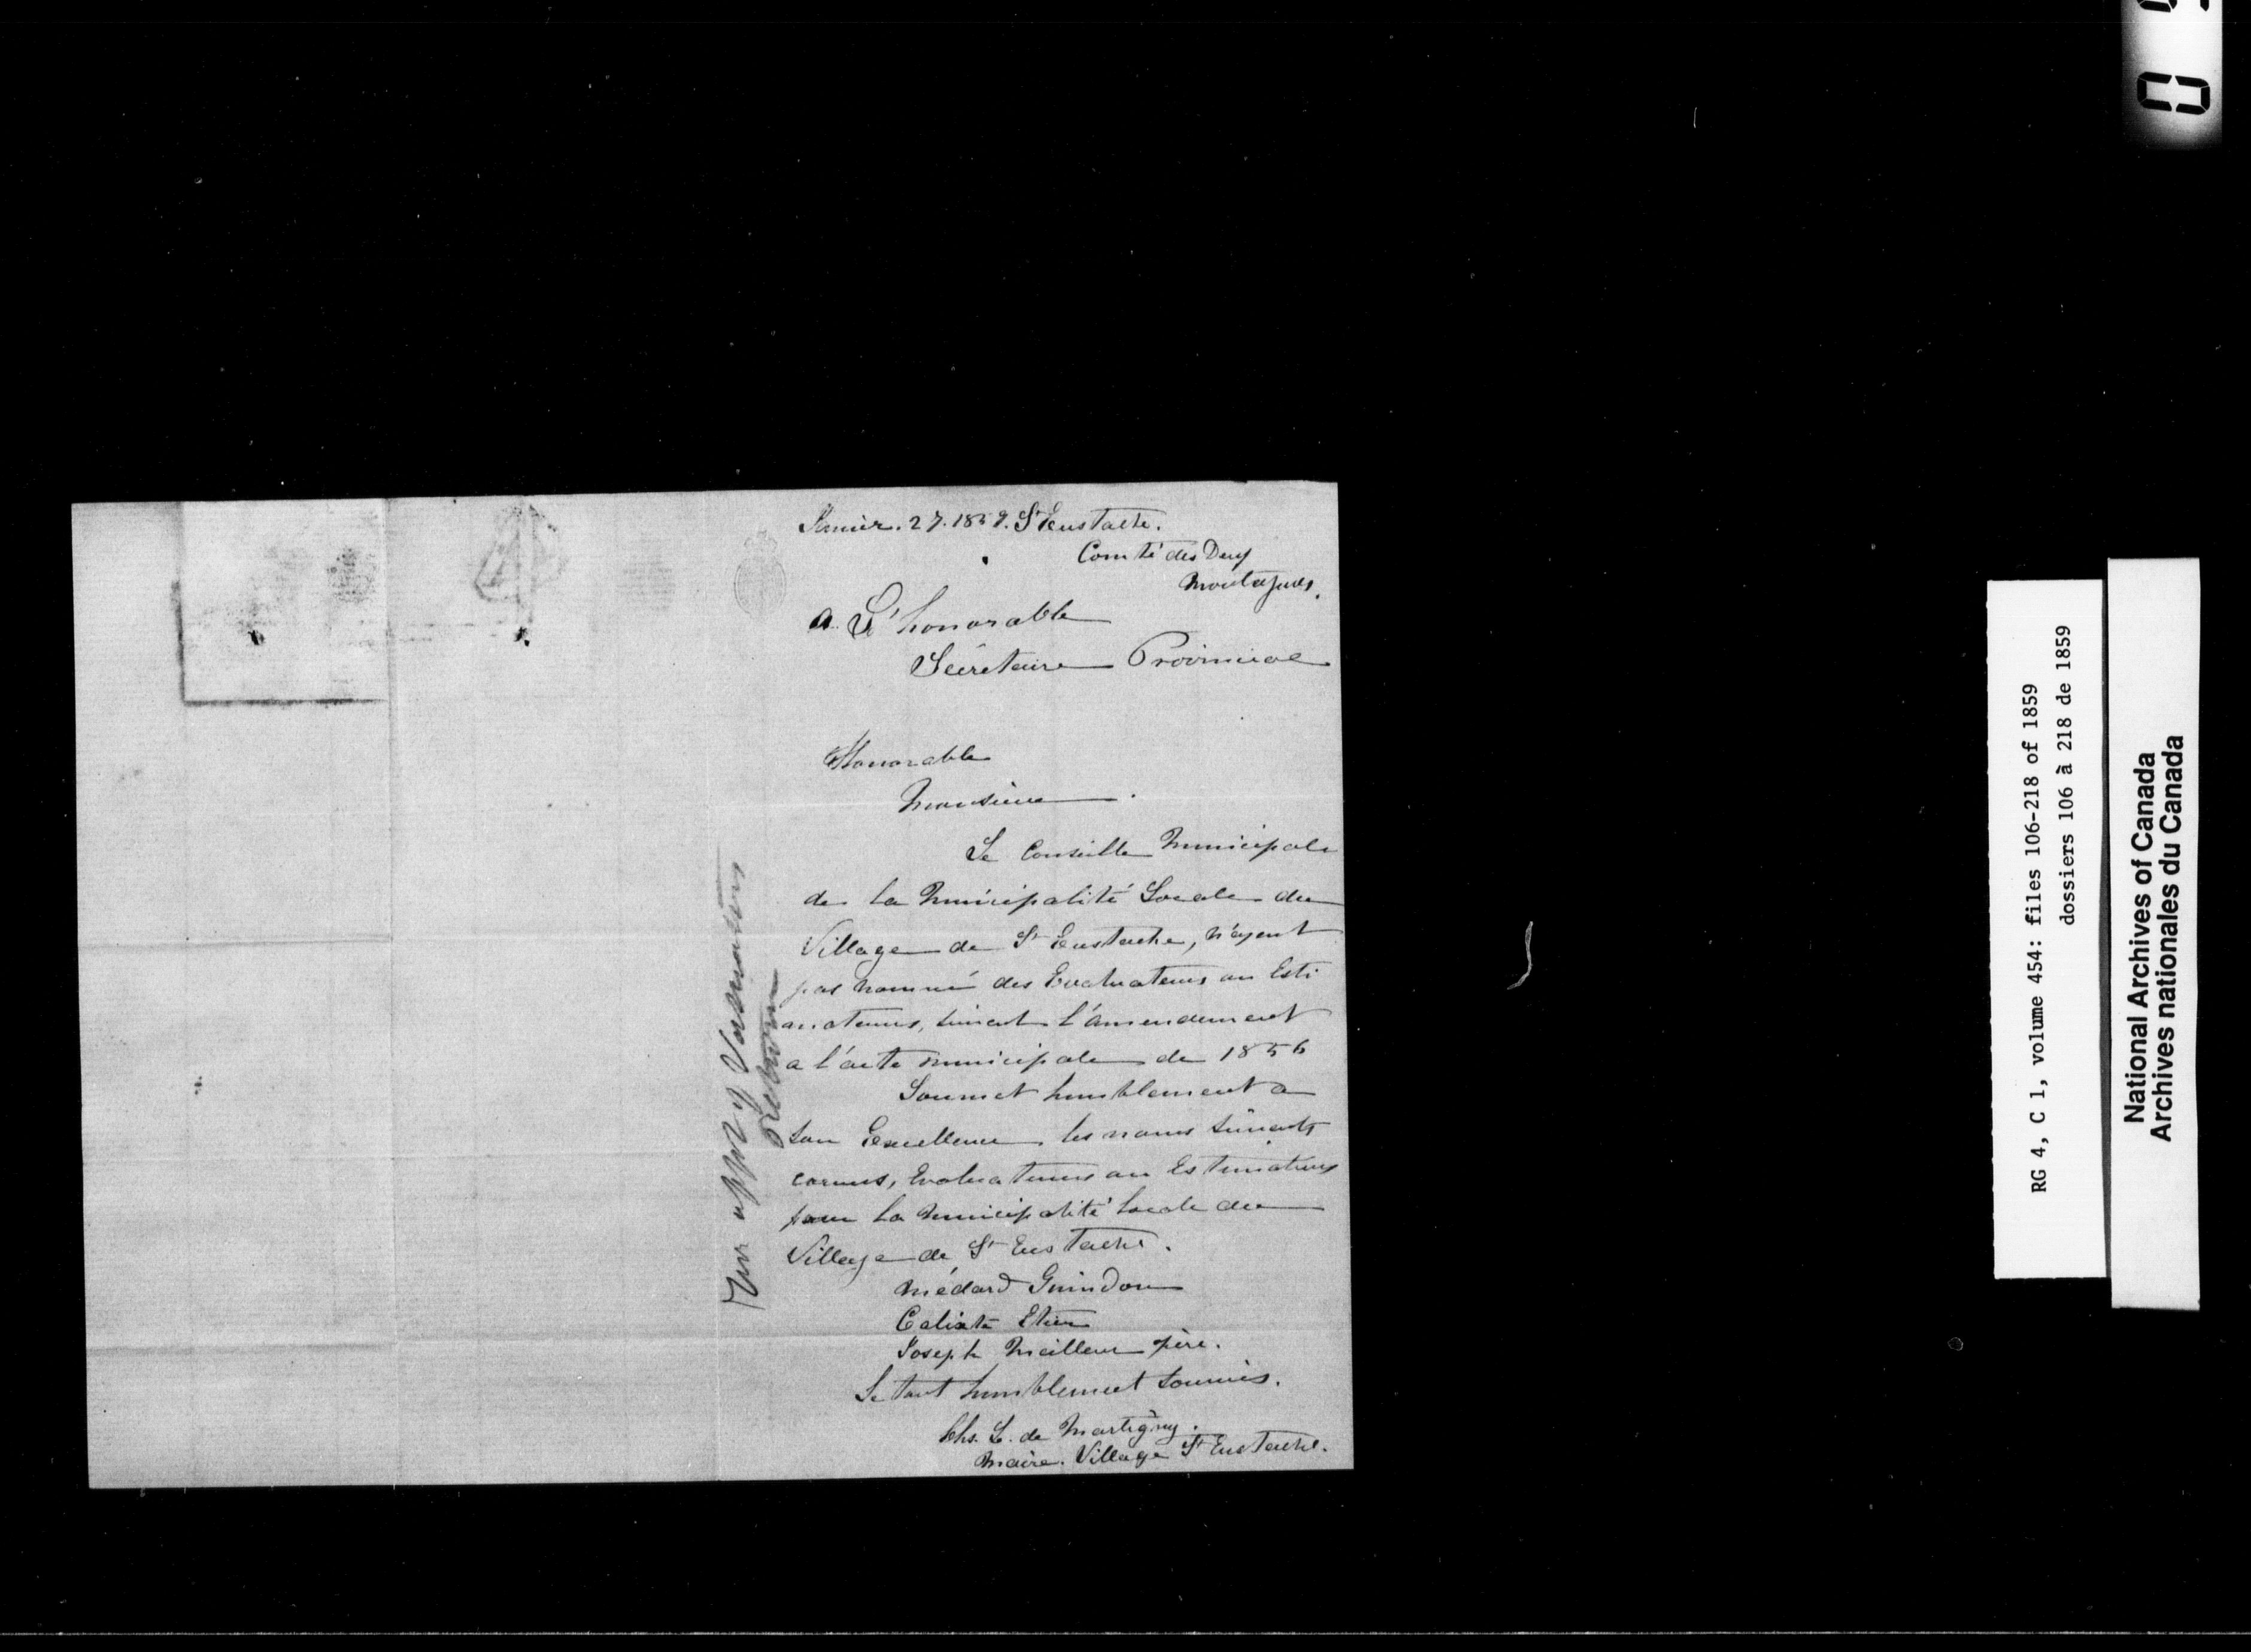 Janvier. 27. 1859. St Eustache.
Comté des Deux
Montagnes.
A L'honorable
Sécretaire Provincial
Honorable
Monsieur
Le Conseille Municipale
de la Municipalité Locale du
Village de St Eustache, n'ayent
pas nommé des Evaluateurs ou Esti
mateurs, suivant l'amendement
a l'acte municipale de 1856
Soumet humblement a
Son Excellence les noms suivants
comme, Evaluateurs ou Estimateurs
pour la Municipalité locale du
Village de St Eustache.
Médard Guindon
Calixte Etier
Joseph Meilleur père.
Le tout humblement soumis.
Chs. L. de Martigny.
Maire. Village St Eustache.
appt of Valuators
RG 4, C 1, volume 454: files 106-218 of 1859
dossiers 106 à 218 de 1859
National Archives of Canada
Archives nationales du Canada